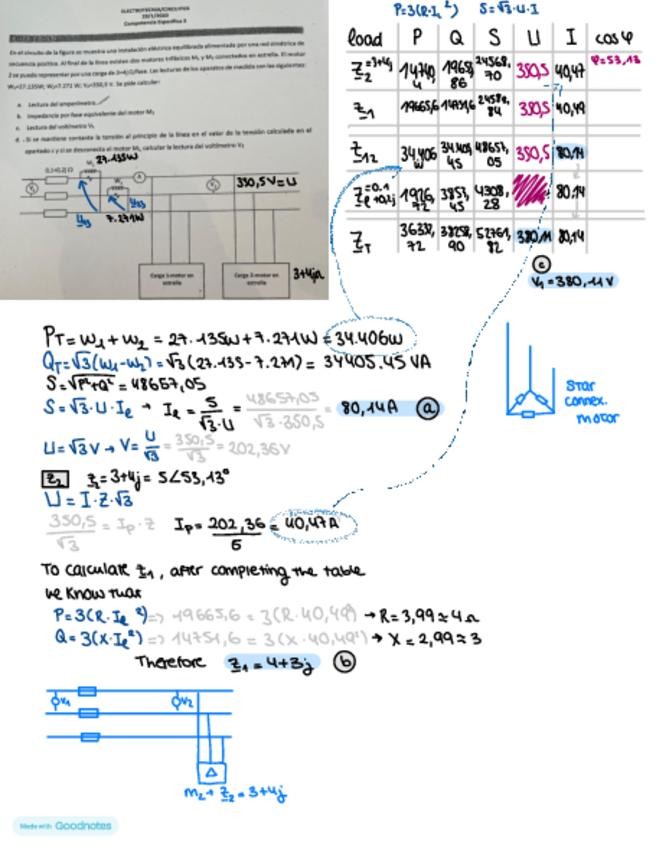 ELECTROTECNIA/CIRCUITOS
Competencia Específica 3
En el circuito de la figura se muestra una instalación eléctrica equilibrada alimentada por una red simétrica de
secuencia positiva. Al final de la línea existen dos motores trifásicos M₁ y M₂ conectados en estrella. El motor
2 se puede representar por una carga de 3+4j Ω/fase. Las lecturas de los aparatos de medida son las siguientes:
W₁=27.135W; W₂=7.271 W; V₂=350,5 V. Se pide calcular:
a. Lectura del amperímetro.
b. Impedancia por fase equivalente del motor M₁
c. Lectura del voltímetro V₁
d. Si se mantiene constante la tensión al principio de la línea en el valor de la tensión calculada en el
apartado c y si se desconecta el motor M₁ calcular la lectura del voltímetro V₂
27.135W
W₁
W₂
A
V₁
V₂
350,5V=U
U₁₃
U₂₃
7.271W
Carga 1-motor en
estrella
Carga 2-motor en
estrella
3+4jΩ
P=3(R·I² ) S=√3·U·I
load P Q S U I cosφ
Z₂=3+4j 14740,4 19653,86 24568,70 350,5 40,47 φ=53,13
Z₁ 19665,6 14751,6 24584,84 350,5 40,49
Z₁₂ 34.406 W 34.405,45 48657,05 350,5 80,14
Zℓ=0.1+0.2j 1926,72 3853,45 4308,28 80.14
Z_T 36332,72 38258,90 52761,82 380.11 80,14
c
V₁=380,11V
P_T=W₁+W₂ = 27.135W+7.271W=34.406W
Q_T=√3(W₁-W₂)=√3(27.135-7.271)= 34405.45 VA
S=√P²+Q² = 48657,05
S=√3·U·Iℓ → Iℓ = S/√3·U = 48657,05/√3·350,5 = 80,14A a
U=√3V → V= U/√3 = 350,5/√3 = 202,36V
Z₂ Z₂=3+4j= 5∠53,13°
U=I·Z·√3
350,5/√3 = Ip·Z Ip= 202,36/5 = 40,47A
Star
connex.
motor
To calculate Z₁, after completing the table
we know that
P=3(R·Iℓ²)=> 19665,6 = 3(R·40,49²) → R=3,99≈4Ω
Q=3(X·Iℓ²)=> 14751,6 = 3(X·40,49²) → X=2,99≈3
Therefore Z₁=4+3j b
V₁
V₂
Δ
M₂→Z₂=3+4j
Made with Goodnotes